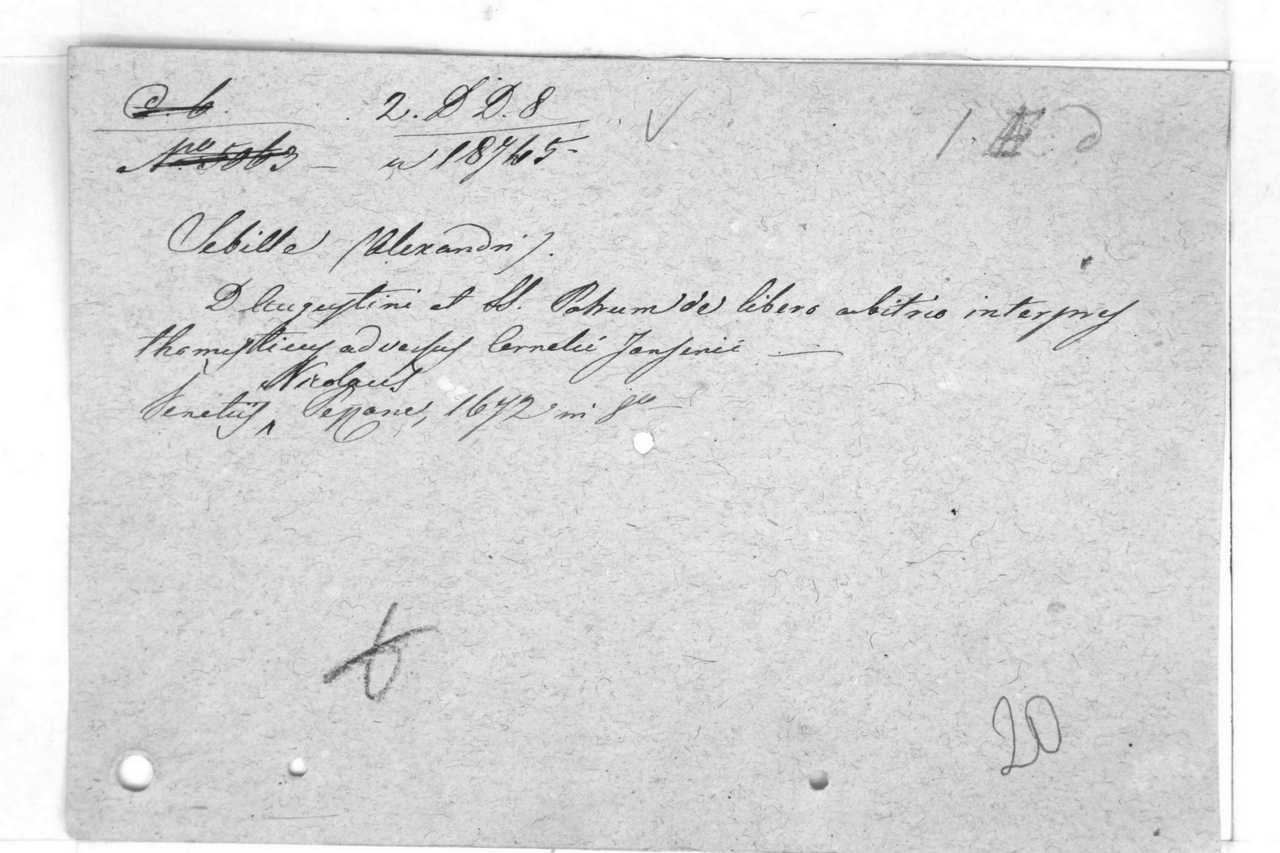 C. b. 2. D D. 8
n 18745
Sebille (Alexandri).
D. Augustini et SS. Patrum de libero arbitrio interpres
thomisticus adversus Cornelii Jansenii
Nicolaus
Venetiis 1672 in 8º
6
20